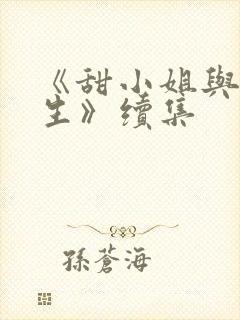 《甜小姐與
生》續集
孫蒼海